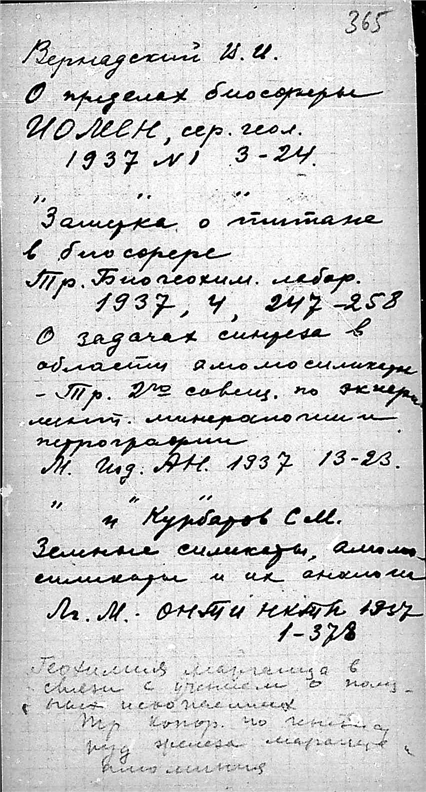 365
Вернадский В. И.
О пределах биосферы
ИОМЕН, сер. геол.
1937 №1 3-24.
" " "
Заметка о титане
в биосфере
Тр. Биогеохим. лабор.
1937, 4, 247-258
О задачах синтеза в
области алюмосиликатн
- Тр. 2го совещ. по экпери
мент. минералогии и
петрографии
М. Изд. АН. 1937 13-23.
" и " Курбатов С М.
Земные силикаты, алюмо-
силикаты и их аналоги
Лг. М. ОНТИ НКТП 1937
1-378
Геохимия марганца в
связи с учением о полез-
ных ископаемых
Тр конф. по генезису
руд железа марганца
алюминия